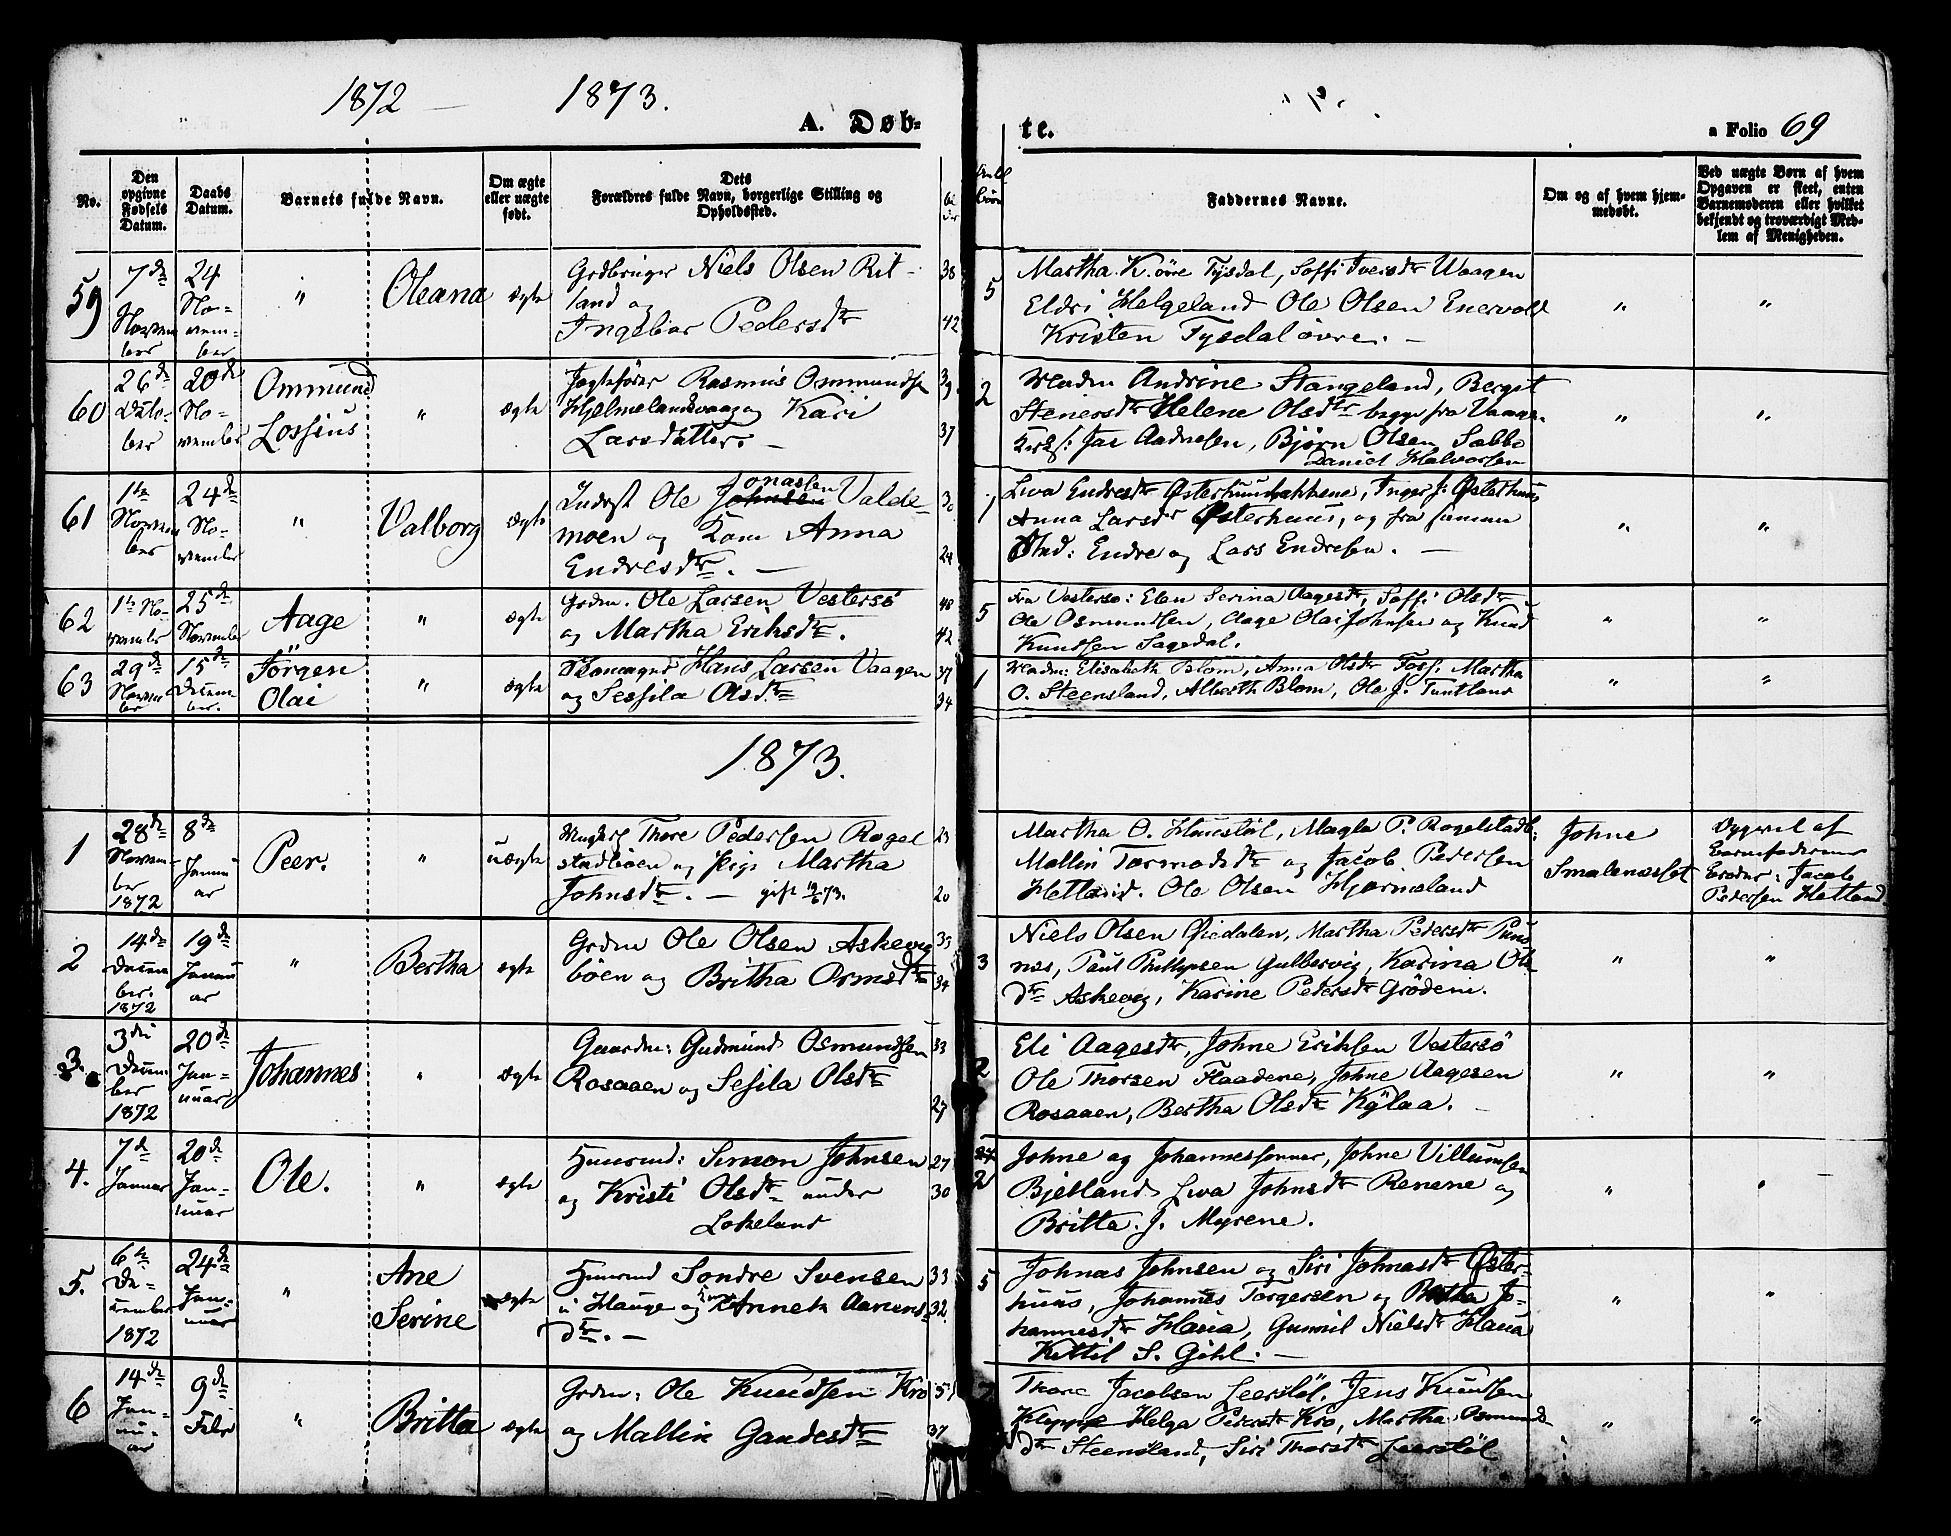 1872 — 1873.
A. Døb-
te.
a Folio 69
No.
Den opgivne Fødsels Datum.
Daabs Datum.
Barnets fulde Navn.
Om ægte eller uægte født.
Dets Forældres fulde Navn, borgerlige Stilling og Opholdssted.
Faddernes Navne.
Om og af hvem hjemmedøbt.
Ved uægte Børn af hvem Opgaven er skeet, enten Barnemoderen eller hvilket bekjendt og troværdigt Medlem af Menigheden.
59
7de November
24 November
"
Oleana
ægte
Grdbruger Niels Olsen Rit-
land og
Ingebor Pedersdtr
38
42
5
Martha K. øvre Tysdal, Soffi Iversdtr Vaagen
Eldri Helgeland Ole Olsen Enervold
Kristen Tysdal øvre. —
"
"
60
26de October
20de November
Ommund
Lossius
"
ægte
Jagtefører Rasmus Osmunds
Hjelmelandsvaag og Kari
Larsdatter. —
39
37
2
Madm Andrine Stangeland, Bergit
Helene Olsdtr begge fra
Aadnesen, Bjørn Olsen Sæbbø
Daniel Halvorsen
"
"
61
1ste November
24de November
"
Valborg
ægte
Inderst Ole Johnsen Jonassen Valde-
moen og Kone Anna
Endresdtr. —
30
24
1
Østerhuus
Anna Larsdr Østerhuus, og fra samme
Sted: Endre og Lars Endresen. —
"
"
62
1ste November
25de November
Aage
"
ægte
Grdm. Ole Larsen Vestersø
og Martha Eriksdtr.
48
42
5
Fra Vestersø: Elen Serina Aagesdtr, Soffi Olsdtr
Ole Osmundsen, Aage Olai Johnsen og Knud
Knudsen Sagedal.
"
"
63
29de November
15de December.
Jörgen
Olai
"
ægte
Hans Larsen Vaagen
og Sessila Olsdtr
37
34
1
Madm: Elisabeth Blom, Anna Olsdtr Foss: Martha
O. Steensland, Albert Blom, Ole J. Tuntland
"
"
1873.
1
28de November 1872
8de Januar
Peer.
"
uægte
Ungkarl Thore Pedersen Rogel
stadbøen og Pige Martha
Johnsdtr. — gift 73.
23
20
Martha O. Magla P. Rogelstadb:
Mallin Tormodsdtr og Jacob Pedersen
Hetland. Ole Olsen Hjorteland
Johne
Smalenæsset
Opgivet af
Barnefaderens
Broder: Jacob
Pedersen Hetland
2
14de December. 1872
19de Januar
"
Bertha
ægte
Grdm Ole Olsen Askevig
bøen og Britha Ormsdtr
33
34
3
Niels Olsen Martha Pedersdtr Puns
næs, Paul Phillipsen Gulbervig, Karina Ols
dtr Askevig, Karine Pedersdtr Grödem.
"
"
3.
3die December 1872
20de Januar
Johannes
"
ægte
Gaardm: Gudmund Osmundsen
Rosaaen og Sesila Olsdtr
33
27
2
Eli Aagesdtr, Johne Eriksen Vestersö
Ole Thorsen Flaadene, Johne Aagesen
Rosaaen, Bertha Olsdtr Kylaa. —
"
"
4.
7de Januar
20de Januar
Ole.
"
ægte
Huusmd: Simon Johnsen
og Kristi Olsdtr under
Lokeland
27
30
2
Johne og Johannes Johne Villumsen
Bjelland Liva Johnsdtr Renene og
Britta J. Myrene.
"
"
5.
6te December 1872
24de Januar
"
Ane
Serine
ægte
Huusmd Söndre Svensen
u Hauge og Anne Aanens
dtr. —
33
32
5
Johnas Johnsen og Siri Johnasdtr Øster-
huus, Johannes Torgersen og Bertha Jo-
hannesdtr Gunnil Nielsdtr
Kittil S. Göhl. —
"
"
6
14de Januar
9de Febr
"
Britta
ægte
Grdm: Ole Knudsen Kro
og Mallin Gaudesdtr
51
37
7
Thore Jacobsen Leerstöl, Jens Knudsen
Kleppe Helga Pedersdtr Kro, Martha Osmunds
dtr Steensland, Siri Thorsdtr Leerstöl
"
"